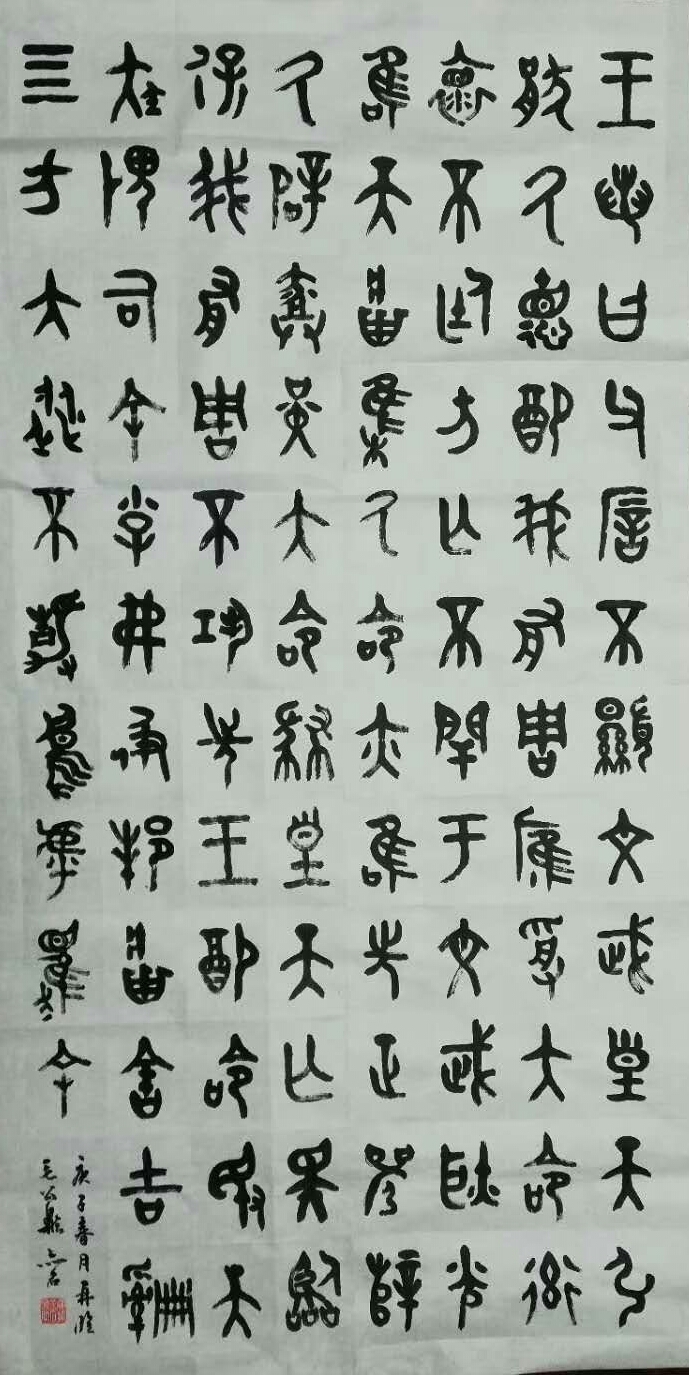 王若曰父厝不顯文武皇天引
猒氒德配我有周雁受大命率
褱不廷方亡不閈于文武耿光
唯天將集氒命亦唯先正襄辥
氒辟堇大命肆皇天亡斁臨
保我有周不巩先王配命敃天
疾畏司余小子弗彶邦將害吉
四方大縱不靜烏虖趯余
庚子春月再臨
毛公鼎